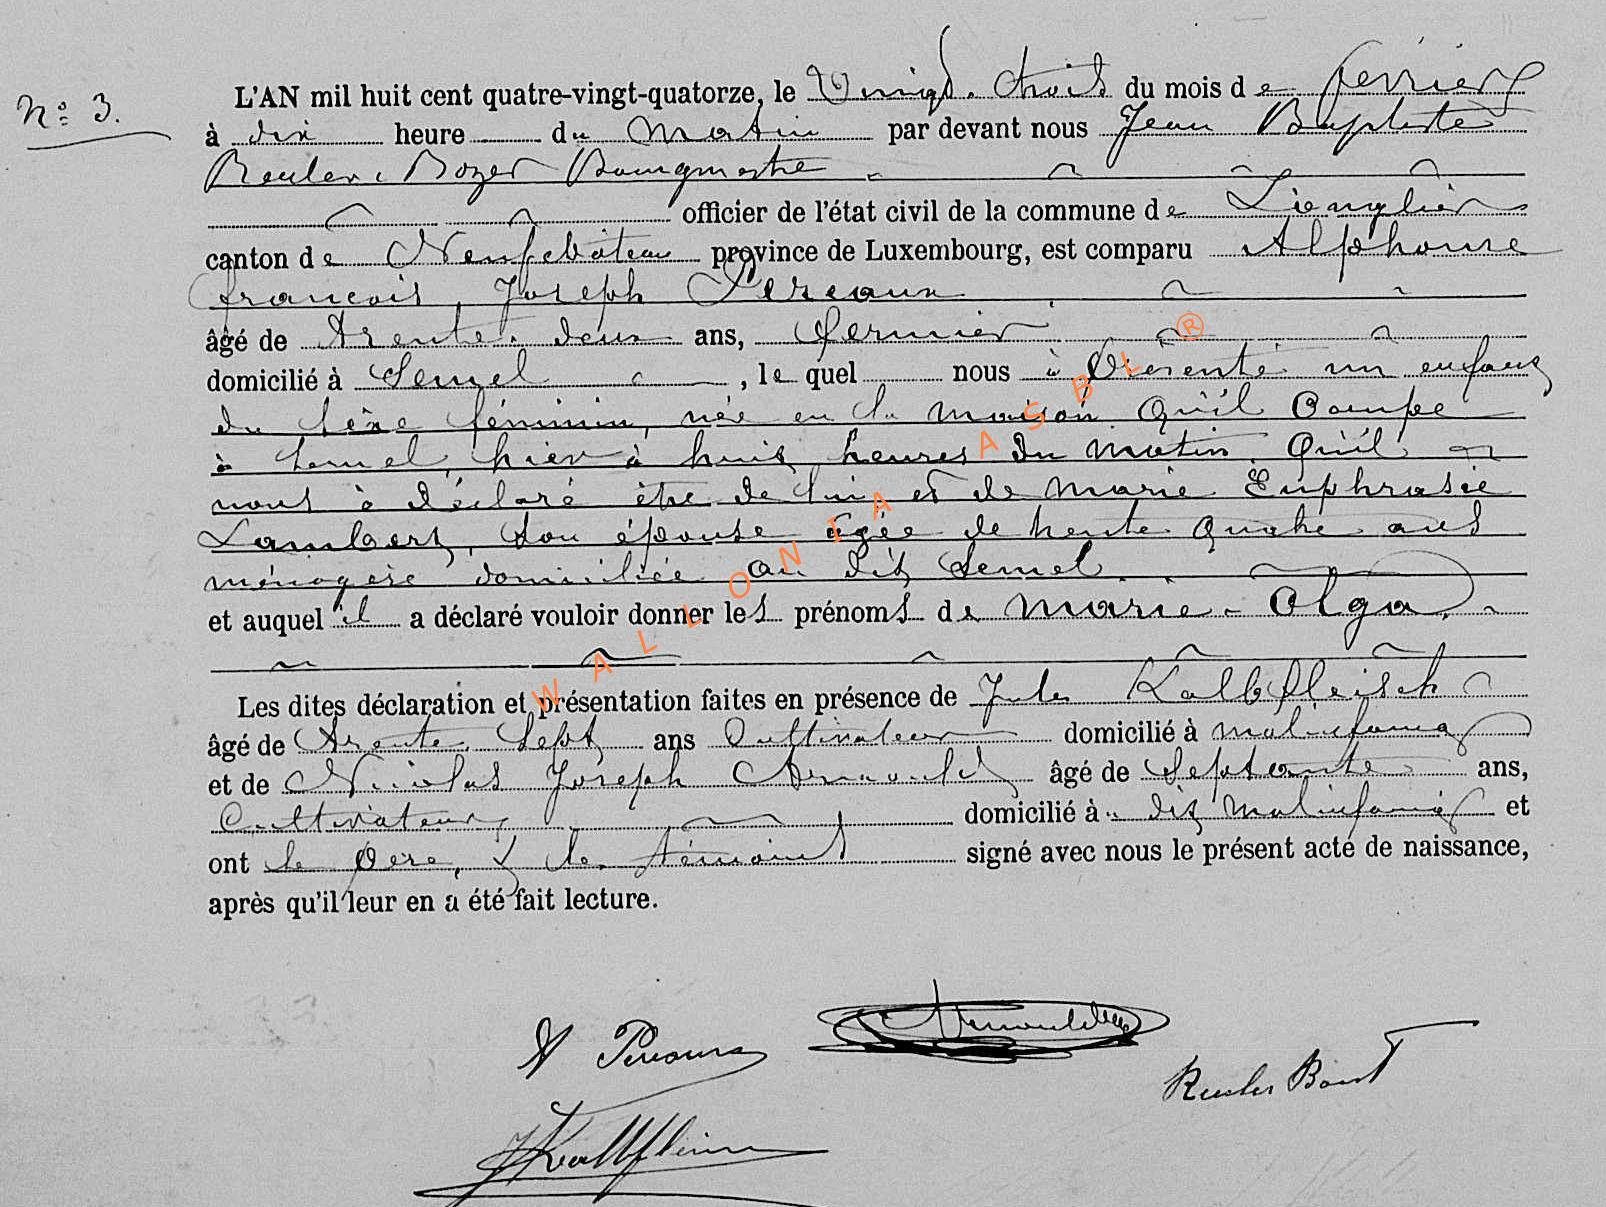 N° 3.
L'AN mil huit cent quatre-vingt-quatorze, le Vingt-trois du mois de février
à dix heure du matin par devant nous Jean Baptiste
Reuler Bozet Bourgmestre
officier de l'état civil de la commune de Longlier
canton de Neufchâteau province de Luxembourg, est comparu Alphonse
françois, Joseph Pereaux
âgé de trente-deux ans, fermier
domicilié à Semel, lequel nous à présenté un enfant
du sexe féminin, née en la maison qu'il occupe
à Semel, hier à huit heures du matin. qu'il
nous à déclaré être de lui et de Marie Euphrasie
Lambert, son épouse âgée de trente quatre ans
ménagère domiciliée au dit Semel.
et auquel il a déclaré vouloir donner les prénoms de Marie-Olga.
Les dites déclaration et présentation faites en présence de Jules Kalbfleisch
âgé de trente-sept ans Cultivateur domicilié à molinfaing
et de Nicolas Joseph Arnould âgé de septante ans,
Cultivateur, domicilié à dit molinfaing et
ont le père, & les témoins signé avec nous le présent acte de naissance,
après qu'il leur en a été fait lecture.
WALLONIA ASBL ®